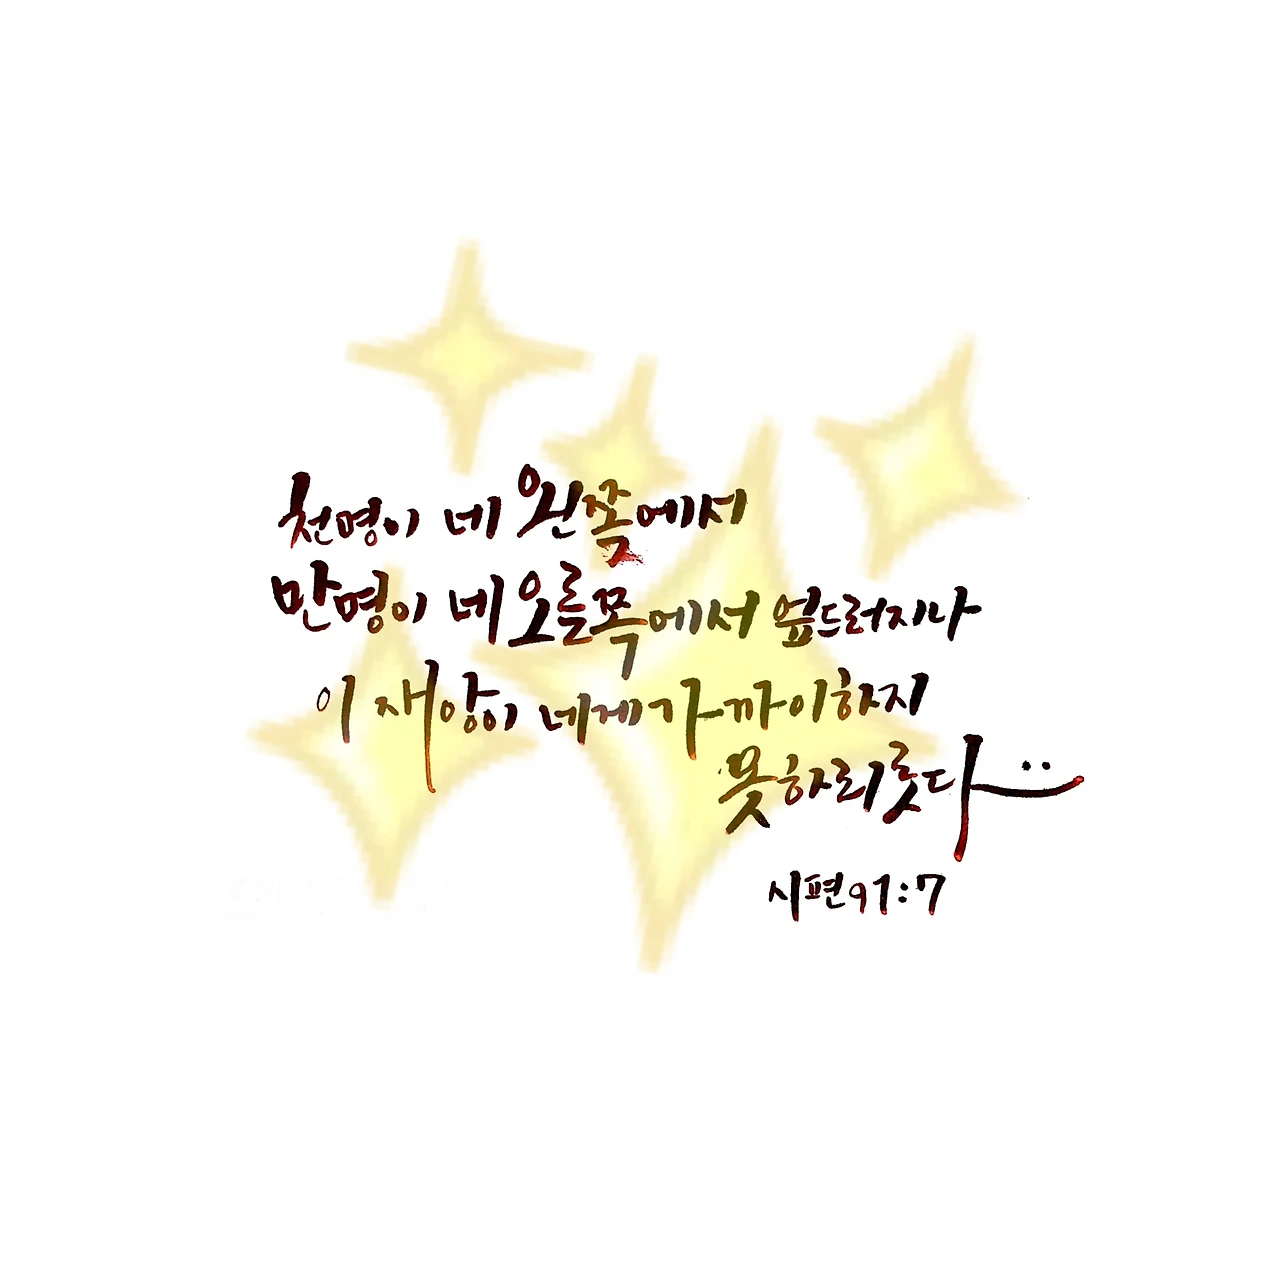 천명이 네 왼쪽에서
만명이 네 오른쪽에서 엎드러지나
이 재앙이 네게 가까이하지
못하리로다
시편 91:7